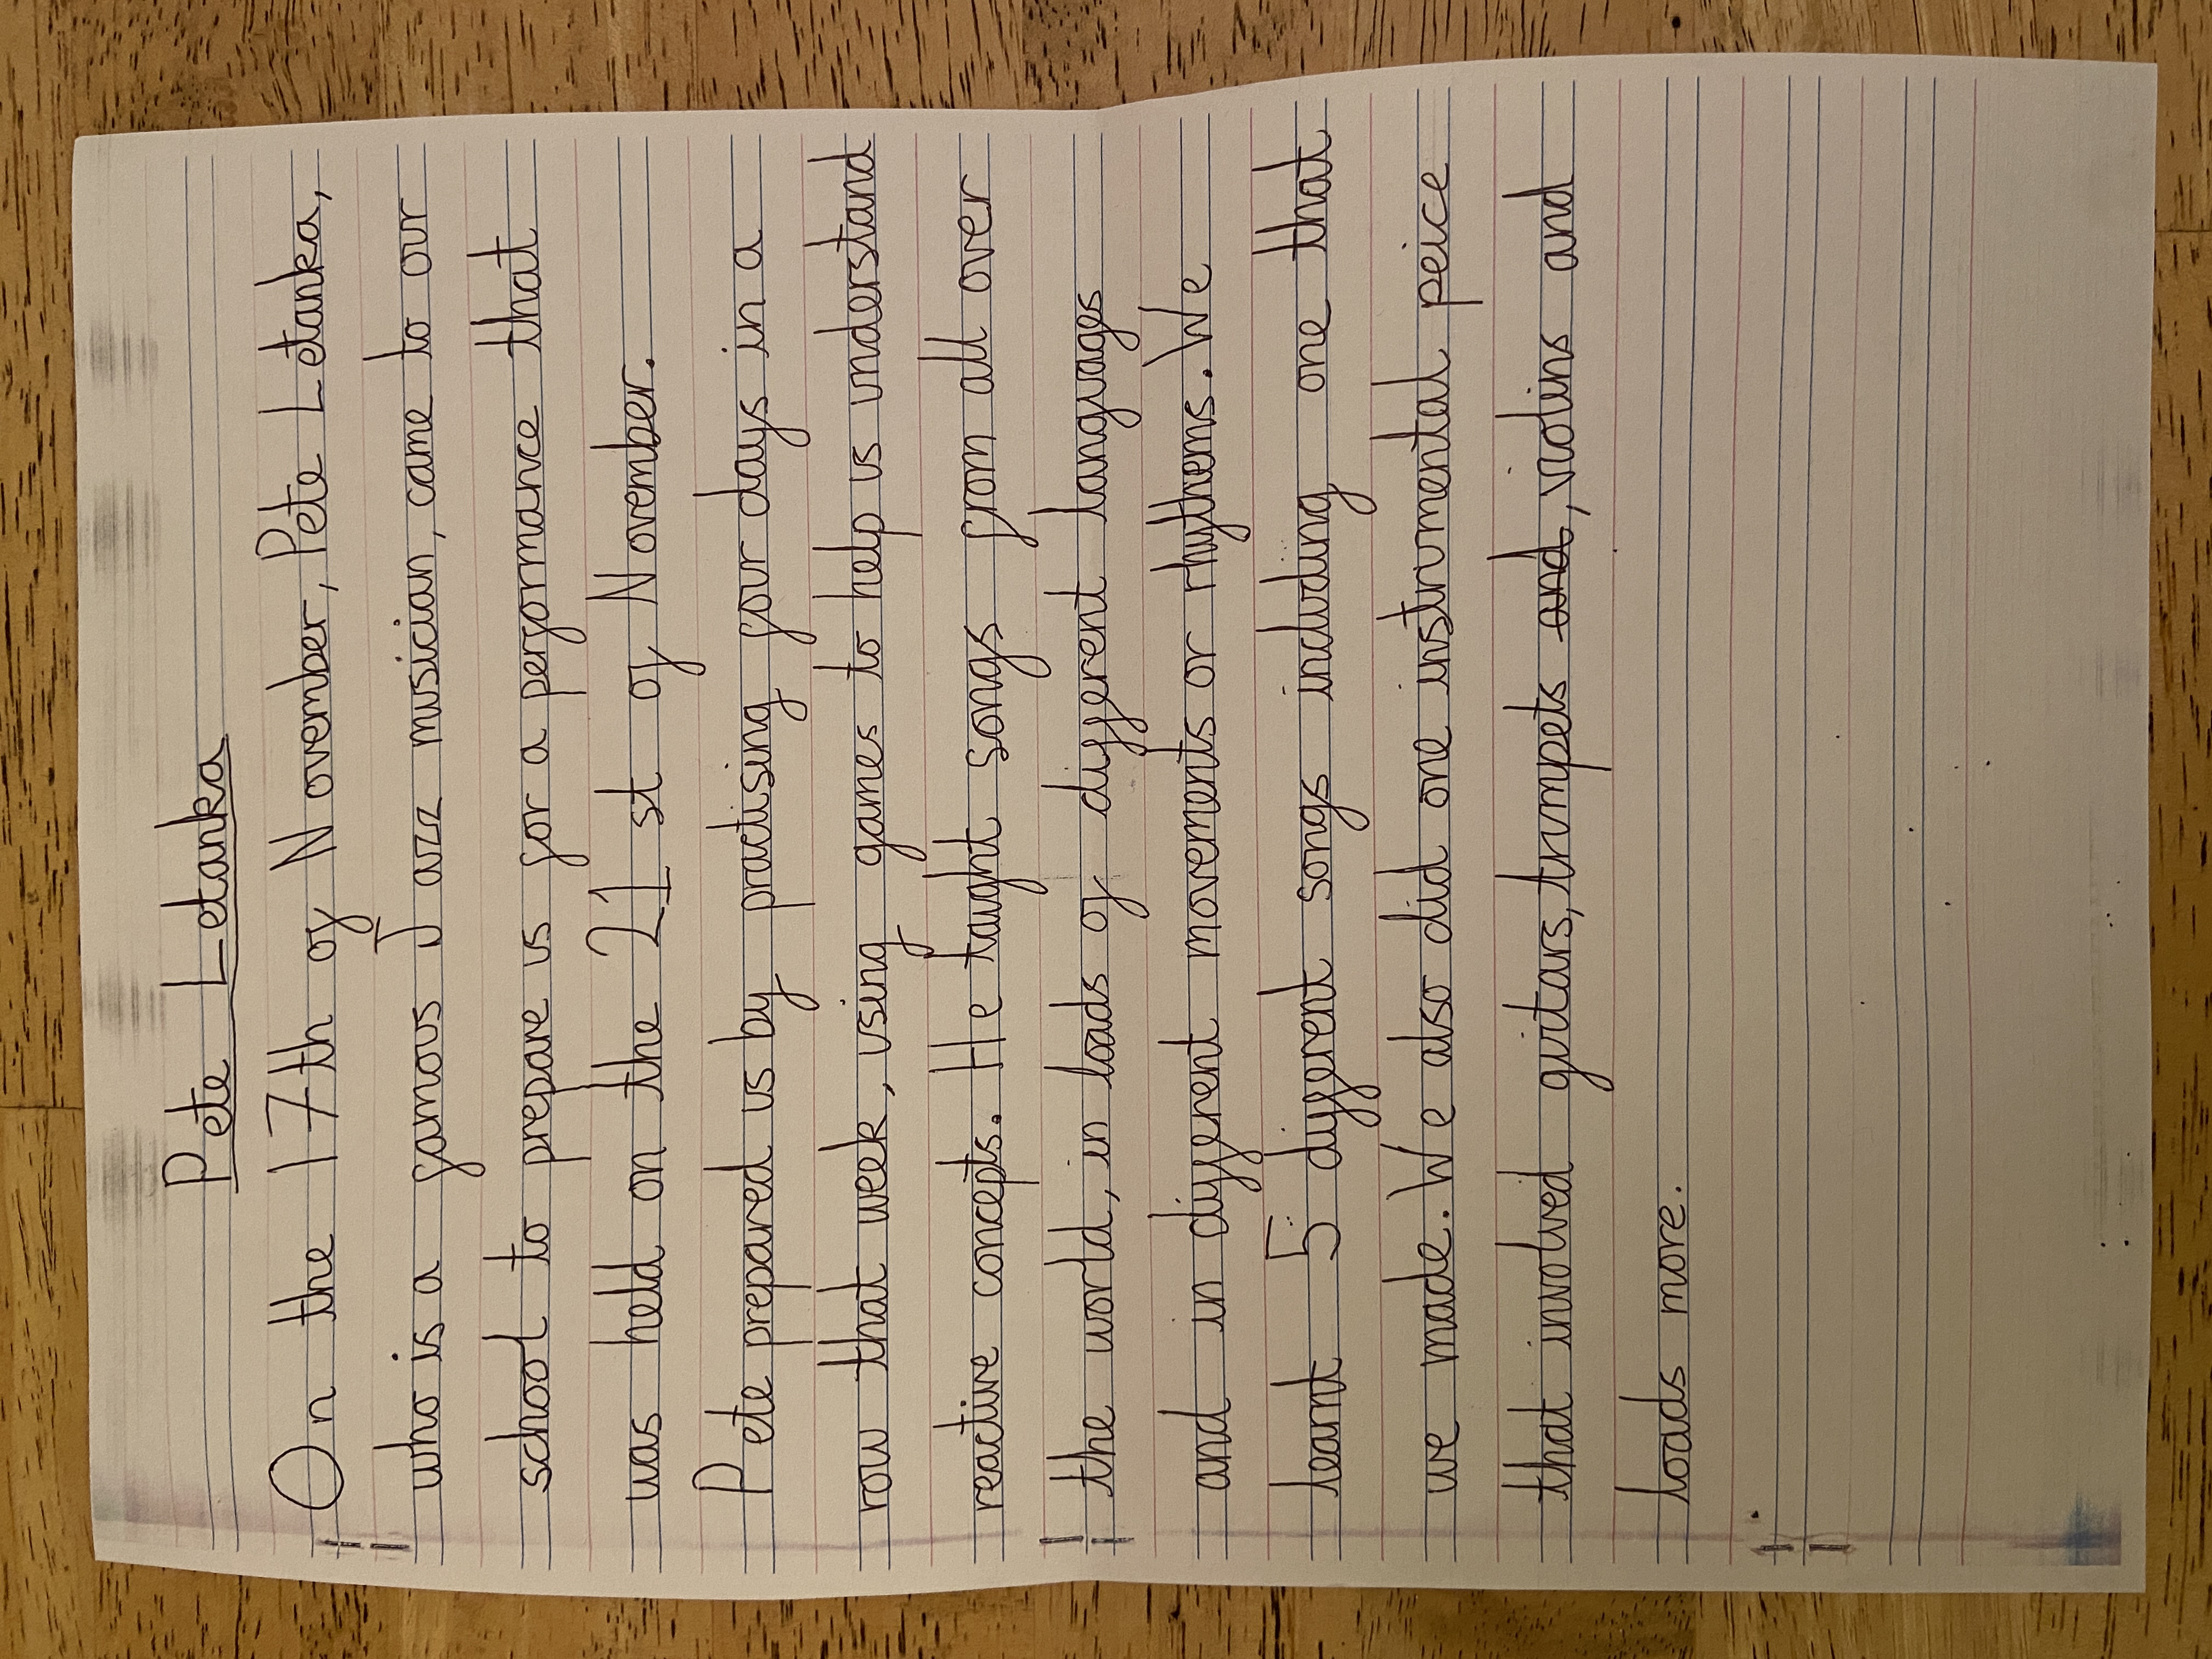 Pete Letanka
On the 17th of November, Pete Letanka,
who is a famous Jazz musician, came to our
school to prepare us for a performance that
was held on the 21st of November.
Pete prepared us by practising four days in a
row that week, using games to help us understand
reactive concepts. He taught songs from all over
the world, in loads of different languages
and in different movements or rhythems. We
learnt 5 different songs including one that
we made. We also did one instrumental peice
that involved girtars, trumpets and, violins and
loads more.